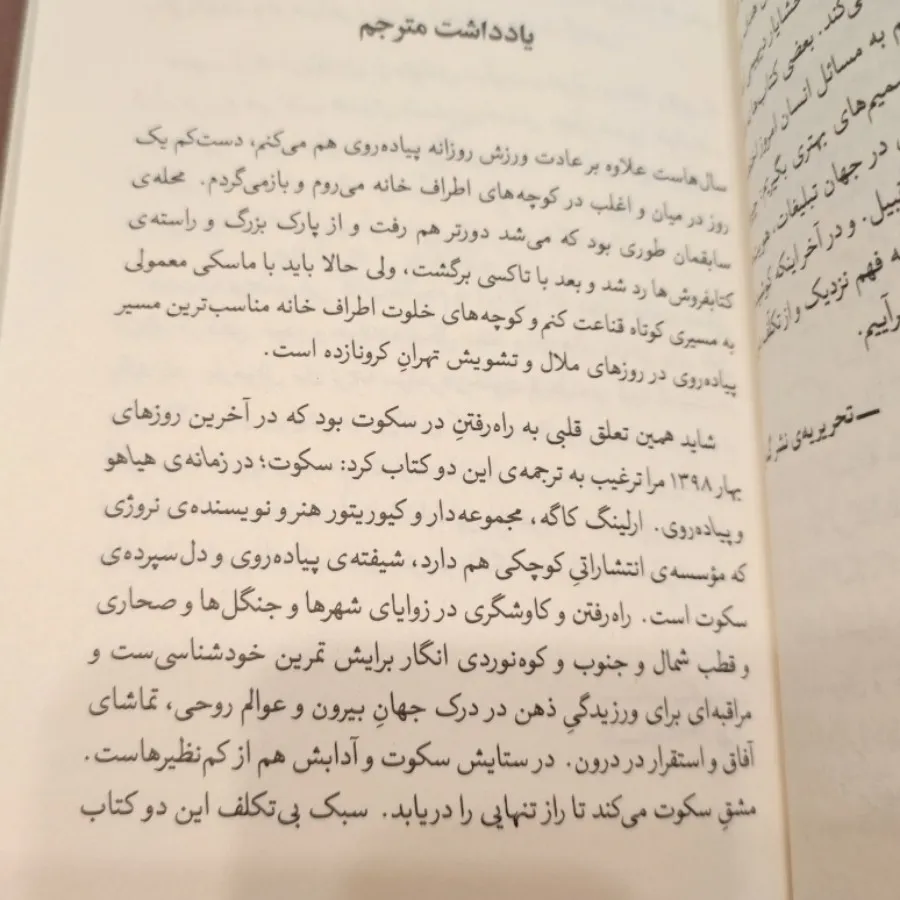 یادداشت مترجم
سال‌هاست علاوه بر عادت ورزش روزانه پیاده‌روی هم می‌کنم، دست‌کم یک
روز در میان و اغلب در کوچه‌های اطراف خانه می‌روم و بازمی‌گردم. محله‌ی
سابقمان طوری بود که می‌شد دورتر هم رفت و از پارک بزرگ و راسته‌ی
کتابفروش‌ها رد شد و بعد با تاکسی برگشت، ولی حالا باید با ماسکی معمولی
به مسیری کوتاه قناعت کنم و کوچه‌های خلوت اطراف خانه مناسب‌ترین مسیر
پیاده‌روی در روزهای ملال و تشویش تهرانِ کرونازده است.
شاید همین تعلق قلبی به راه‌رفتنِ در سکوت بود که در آخرین روزهای
بهار ۱۳۹۸ مرا ترغیب به ترجمه‌ی این دو کتاب کرد: سکوت؛ در زمانه‌ی هیاهو
و پیاده‌روی. ارلینگ کاگه، مجموعه‌دار و کیوریتور هنر و نویسنده‌ی نروژی
که مؤسسه‌ی انتشاراتیِ کوچکی هم دارد، شیفته‌ی پیاده‌روی و دل‌سپرده‌ی
سکوت است. راه‌رفتن و کاوشگری در زوایای شهرها و جنگل‌ها و صحاری
و قطب شمال و جنوب و کوه‌نوردی انگار برایش تمرین خودشناسی‌ست و
مراقبه‌ای برای ورزیدگیِ ذهن در درک جهانِ بیرون و عوالم روحی، تماشای
آفاق و استقرار در درون. در ستایش سکوت و آدابش هم از کم‌نظیرهاست.
مشقِ سکوت می‌کند تا راز تنهایی را دریابد. سبک بی‌تکلف این دو کتاب
می‌کند. بعضی کتاب‌ها
به مسائل انسان امروز
تصمیم‌های بهتری بگیر
در جهان تبلیغات،
قبیل. و در آخر اینکه
فهم نزدیک و از تکلف
— تحریریه‌ی نشر